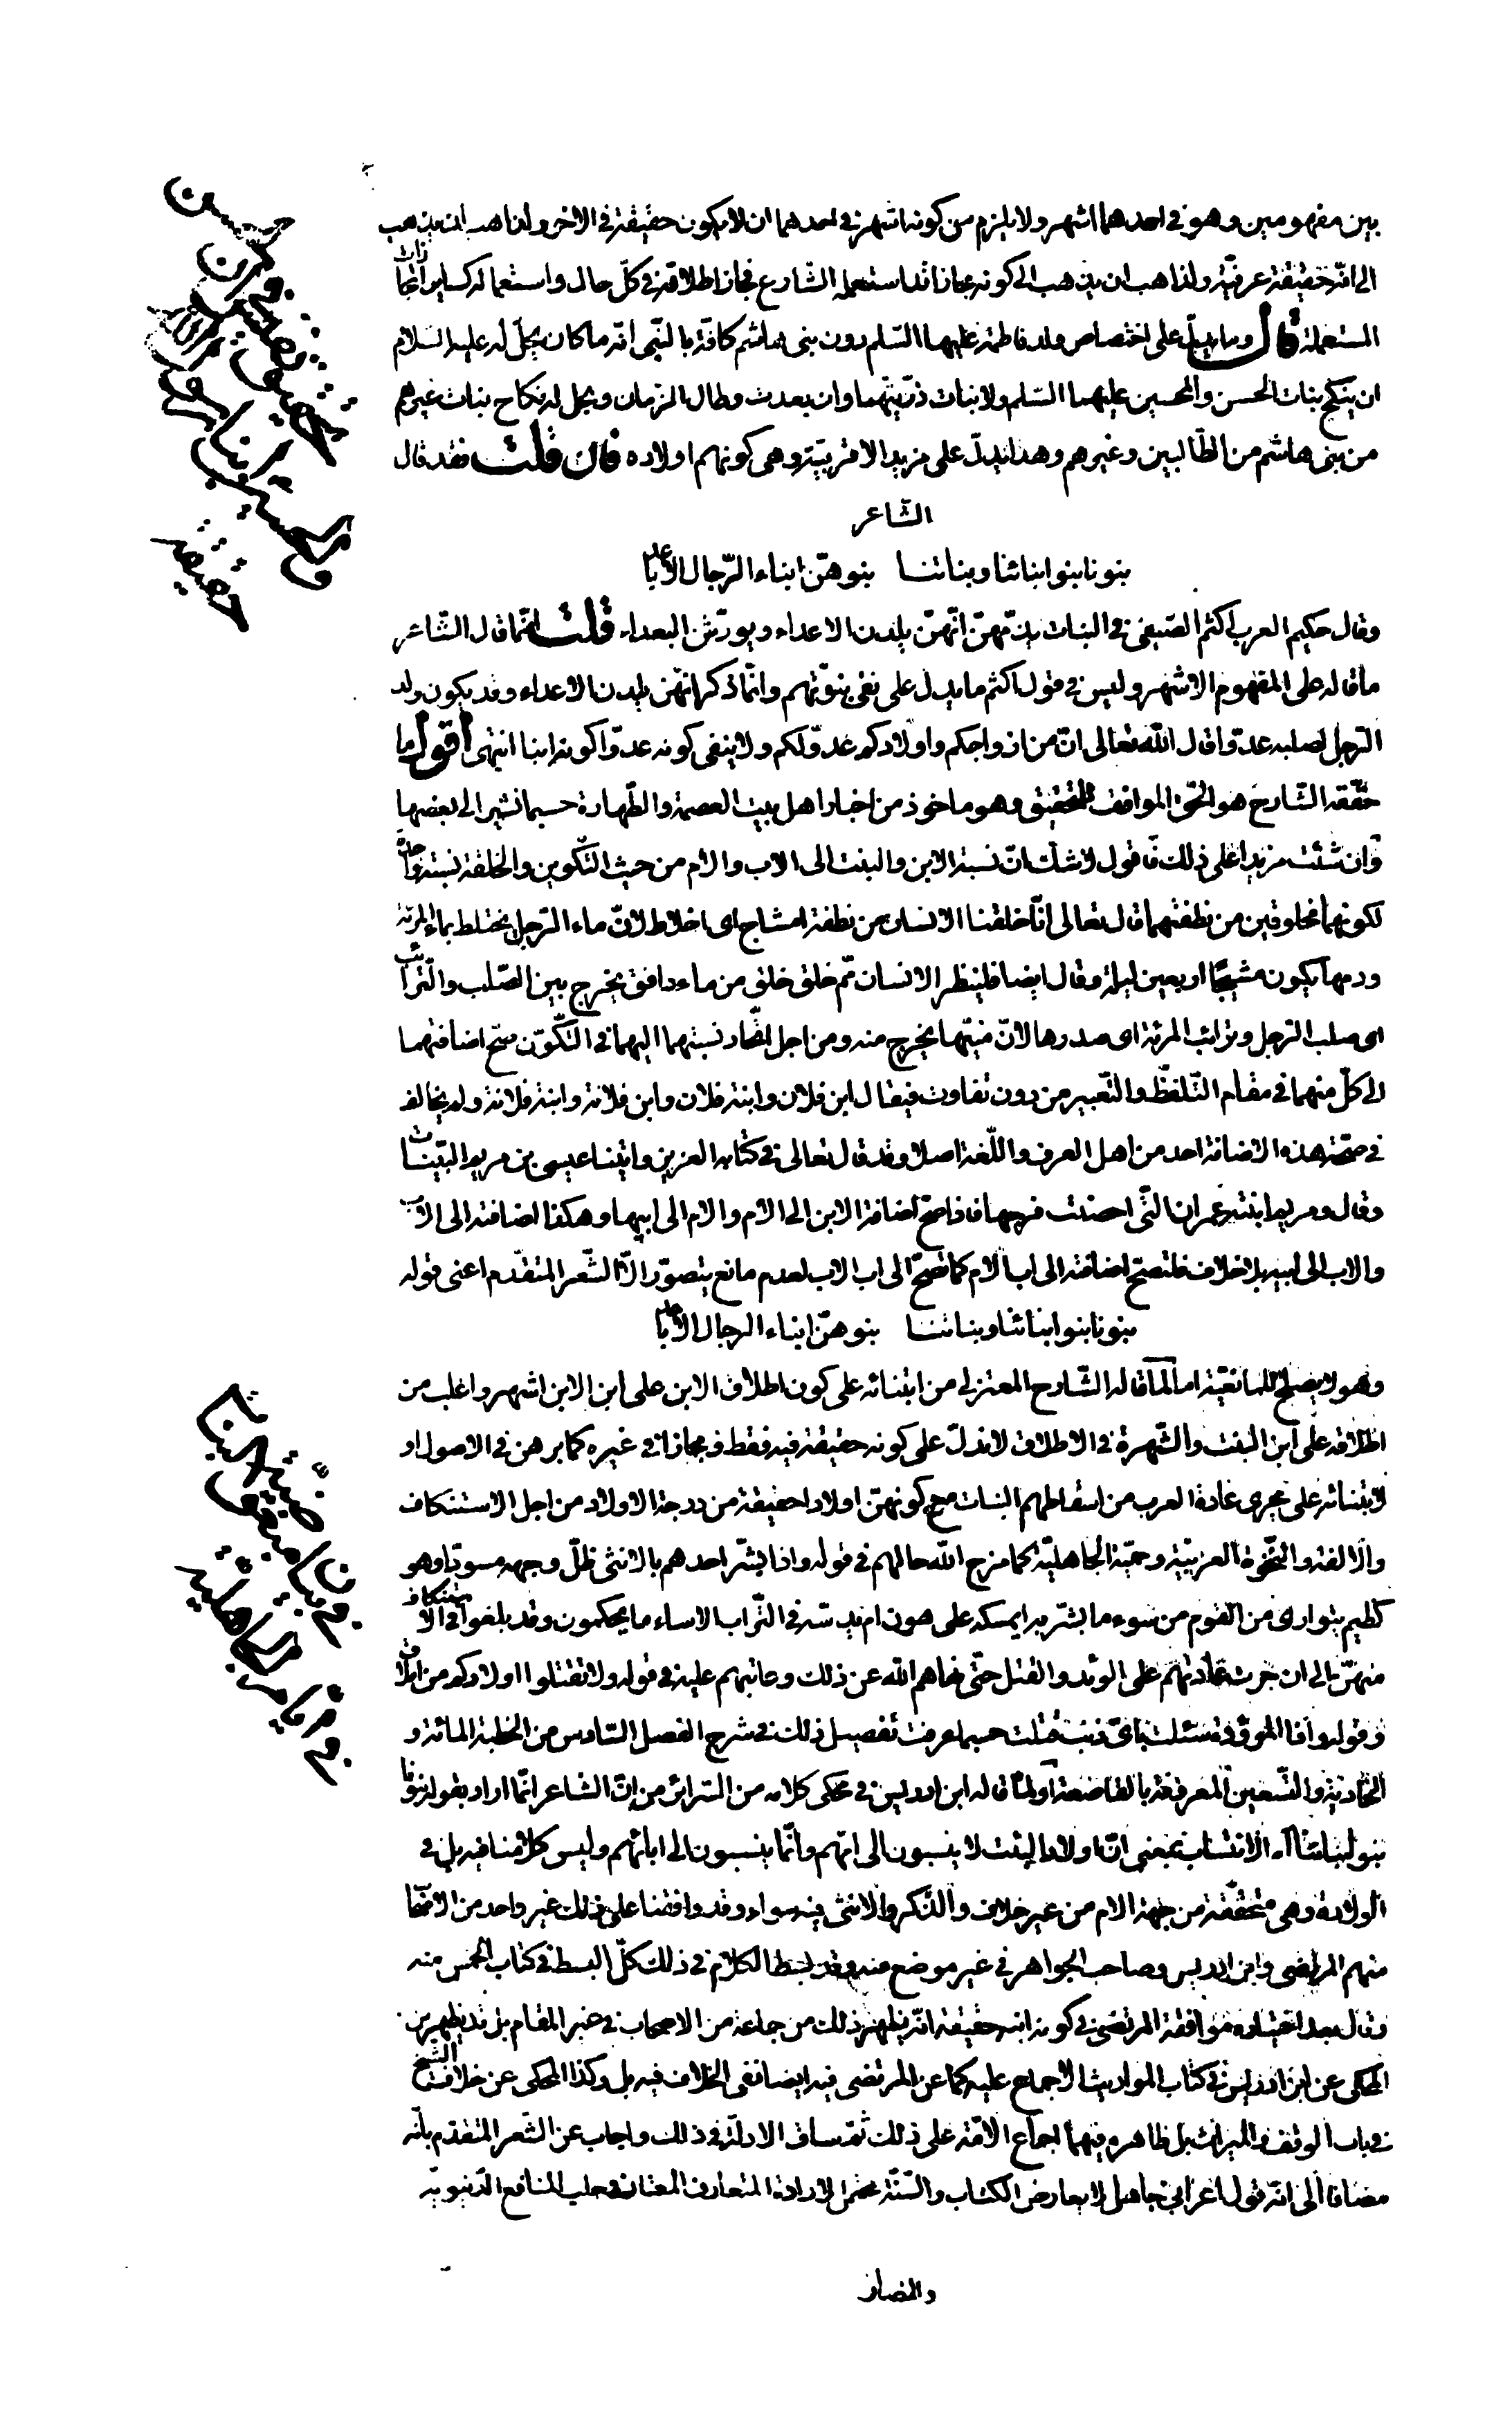 بين مفهومين وهو في احدهما اشهر ولا يلزم من كونه اشهر في احدهما ان لا يكون حقيقة في الاخر ولذاهب ان يذهب
الى انّه حقيقة عرفيّة ولذاهب ان يذهب الى كونه مجازا قد استعمله الشّارع فجاز اطلاقه في كلّ حال واستعماله كساير المجازات
المستعملة قال وما يدلّ على اختصاص ولد فاطمة عليها السّلم دون بنى هاشم كافّة بالنّبى انّه ما كان يحلّ له عليه السلام
ان ينكح بنات الحسن والحسين عليهما السّلم ولا بنات ذرّيتهما وان بعدت وطال الزمان ويحل له نكاح بنات غيرهم
من بنى هاشم من الطّالبيين وغيرهم وهذا يدلّ على مزيد الاقربيّة وهى كونهم اولاده فان قلت فقد قال
الشّاعر
بنونا بنو ابنائنا وبناتنا بنوهنّ ابناء الرّجال الاباعد
وقال حكيم العرب اكثم الصّيفى في البنات يذمّهنّ انّهنّ يلدن الاعداء ويورّثن البعداء قلت انّما قال الشّاعر
ما قاله على المفهوم الاشهر وليس في قول اكثم ما يدل على نفى بنوّتهم وانّما ذكر انّهنّ يلدن الاعداء وقد يكون ولد
الرّجل لصلبه عدوّا قال الله تعالى انّ من ازواجكم واولادكم عدوّا لكم ولا ينفى كونه عدوّا كونه ابنا انتهى اقول ما
حقّقه الشّارح هو الحقّ الموافق للتحقيق وهو ماخوذ من اخبار اهل بيت العصمة والطّهارة حسبما نشير الى بعضها
وان شئت مزيدا على ذلك فاقول لا شك انّ نسبة الابن والبنت الى الاب والام من حيث التّكوين والخلقة نسبة واحدة
لكونهما مخلوقين من نطفتهما قال تعالى انّا خلقنا الانسان من نطفة امشاج اى اخلاط لانّ ماء الرّجل يختلط بماء المرئة
ودمها يكون مشيجًا اربعين ليلة وقال ايضا فلينظر الانسان ممّ خلق خلق من ماء دافق يخرج بين الصّلب والتّرائب
اى صلب الرّجل وترائب المرئة اى صدرها لانّ منيّها يخرج منه ومن اجل اتّحاد نسبتهما اليهما في التّكوّن صحّ اضافتهما
الى كلّ منهما في مقام التّلفّظ والتّعبير من دون تفاوت فيقال ابن فلان وابنة فلان وابن فلانة وابنة فلانة ولم يخالف
في صحّة هذه الاضافة احد من اهل العرف واللّغة اصلا وقد قال تعالى في كتابه العزيز واتينا عيسى بن مريم البيّنات
وقال ومريم ابنت عمران الّتى احصنت فرجها فاذا صحّ اضافة الابن الى الام والام الى ابيها وهكذا اضافته الى الاب
والاب الى ابيه بلا خلاف فلتصحّ اضافته الى اب الام كما تصحّ الى اب الاب لعدم مانع يتصوّر الّا الشّعر المتقدّم اعنى قوله
بنونا بنو ابنائنا وبناتنا بنوهنّ ابناء الرجال الاباعد
وهو لا يصلح للمانعيّة اما لما قاله الشّارح المعتزلى من ابتنائه على كون اطلاق الابن على ابن الابن اشهر واغلب من
اطلاقه على ابن البنت والشّهرة في الاطلاق لا تدلّ على كونه حقيقة فيه فقط ومجازا في غيره كما برهن في الاصول او
لابتنائه على مجرى عادة العرب من اسقاطهم البنات مع كونهنّ اولادا حقيقة من درجة الاولاد من اجل الاستنكاف
والالفة والنّخوة العربيّة وحميّة الجاهليّة كما مزج الله حالهم في قوله واذا بشّر احدهم بالانثى ظلّ وجهه مسودّا وهو
كظيم يتوارى من القوم من سوء ما بشّر به ايمسكه على هون ام يدسّه في التّراب الا ساء ما يحكمون وقد بلغوا في الاستنكاف
منهنّ الى ان جرت عادتهم على الوئد والقتل حتّى نهاهم الله عن ذلك وعاتبهم عليه في قوله ولا تقتلوا اولادكم من املاق
وقوله واذا الموؤدة سئلت باىّ ذنب قتلت حسبما عرفت تفصيل ذلك في شرح الفصل السّادس من الخطبة المائة و
الحادية والتّسعين المعروفة بالقاصعة او لما قاله ابن ادريس في محكى كلامه من السّرائر من انّ الشاعر انّما اراد بقوله بنونا
بنو ابنائنا اه الانتساب بمعنى انّ اولاد البنت لا ينسبون الى امّهم وانّما ينسبون الى ابائهم وليس كلامنا فيه بل في
الولادة وهى متحقّقة من جهة الام من غير خلاف والذّكر والانثى فيه سواء وقد وافقنا على ذلك غير واحد من الاصحاب
منهم المرتضى وابن ادريس وصاحب الجواهر في غير موضع منه وقد بسط الكلام في ذلك كلّ البسط في كتاب الخمس منه
وقال بعد اختياره موافقة المرتضى في كونه ابنه حقيقة انّه يظهر ذلك من جماعة من الاصحاب في غير المقام بل قد يظهر من
المحكى عن ابن ادريس في كتاب المواريث الاجماع عليه كما عن المرتضى فيه ايضا نفى الخلاف فيه بل وكذا المحكى عن خلاف الشّيخ
في باب الوقف والميراث بل ظاهره فيهما اجماع الامّة على ذلك ثمّ ساق الادلّة في ذلك واجاب عن الشّعر المتقدّم بانّه
مضافا الى انّه قول اعرابى جاهل لا يعارض الكتاب والسّنّة محتمل لارادة المتعارف المعتاد في جلب المنافع الدّنيويّة
والمضار